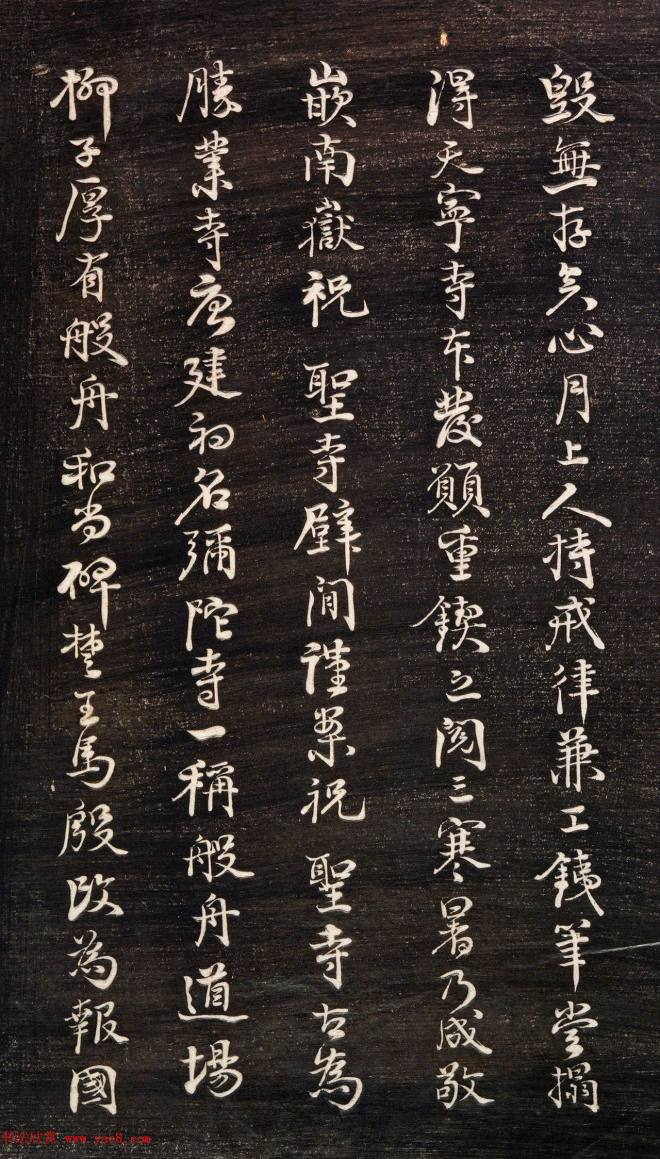 毀無存矣心月上人持戒律兼工鐵筆嘗搨
得天寧寺本發願重鍥之閱三寒暑乃成敬
嵌南嶽祝 聖寺壁間謹案祝 聖寺古為
勝業寺唐建初名彌陀寺一稱般舟道場
柳子厚有般舟和尚碑楚王馬殷改為報國
书法欣赏 www.yac8.com